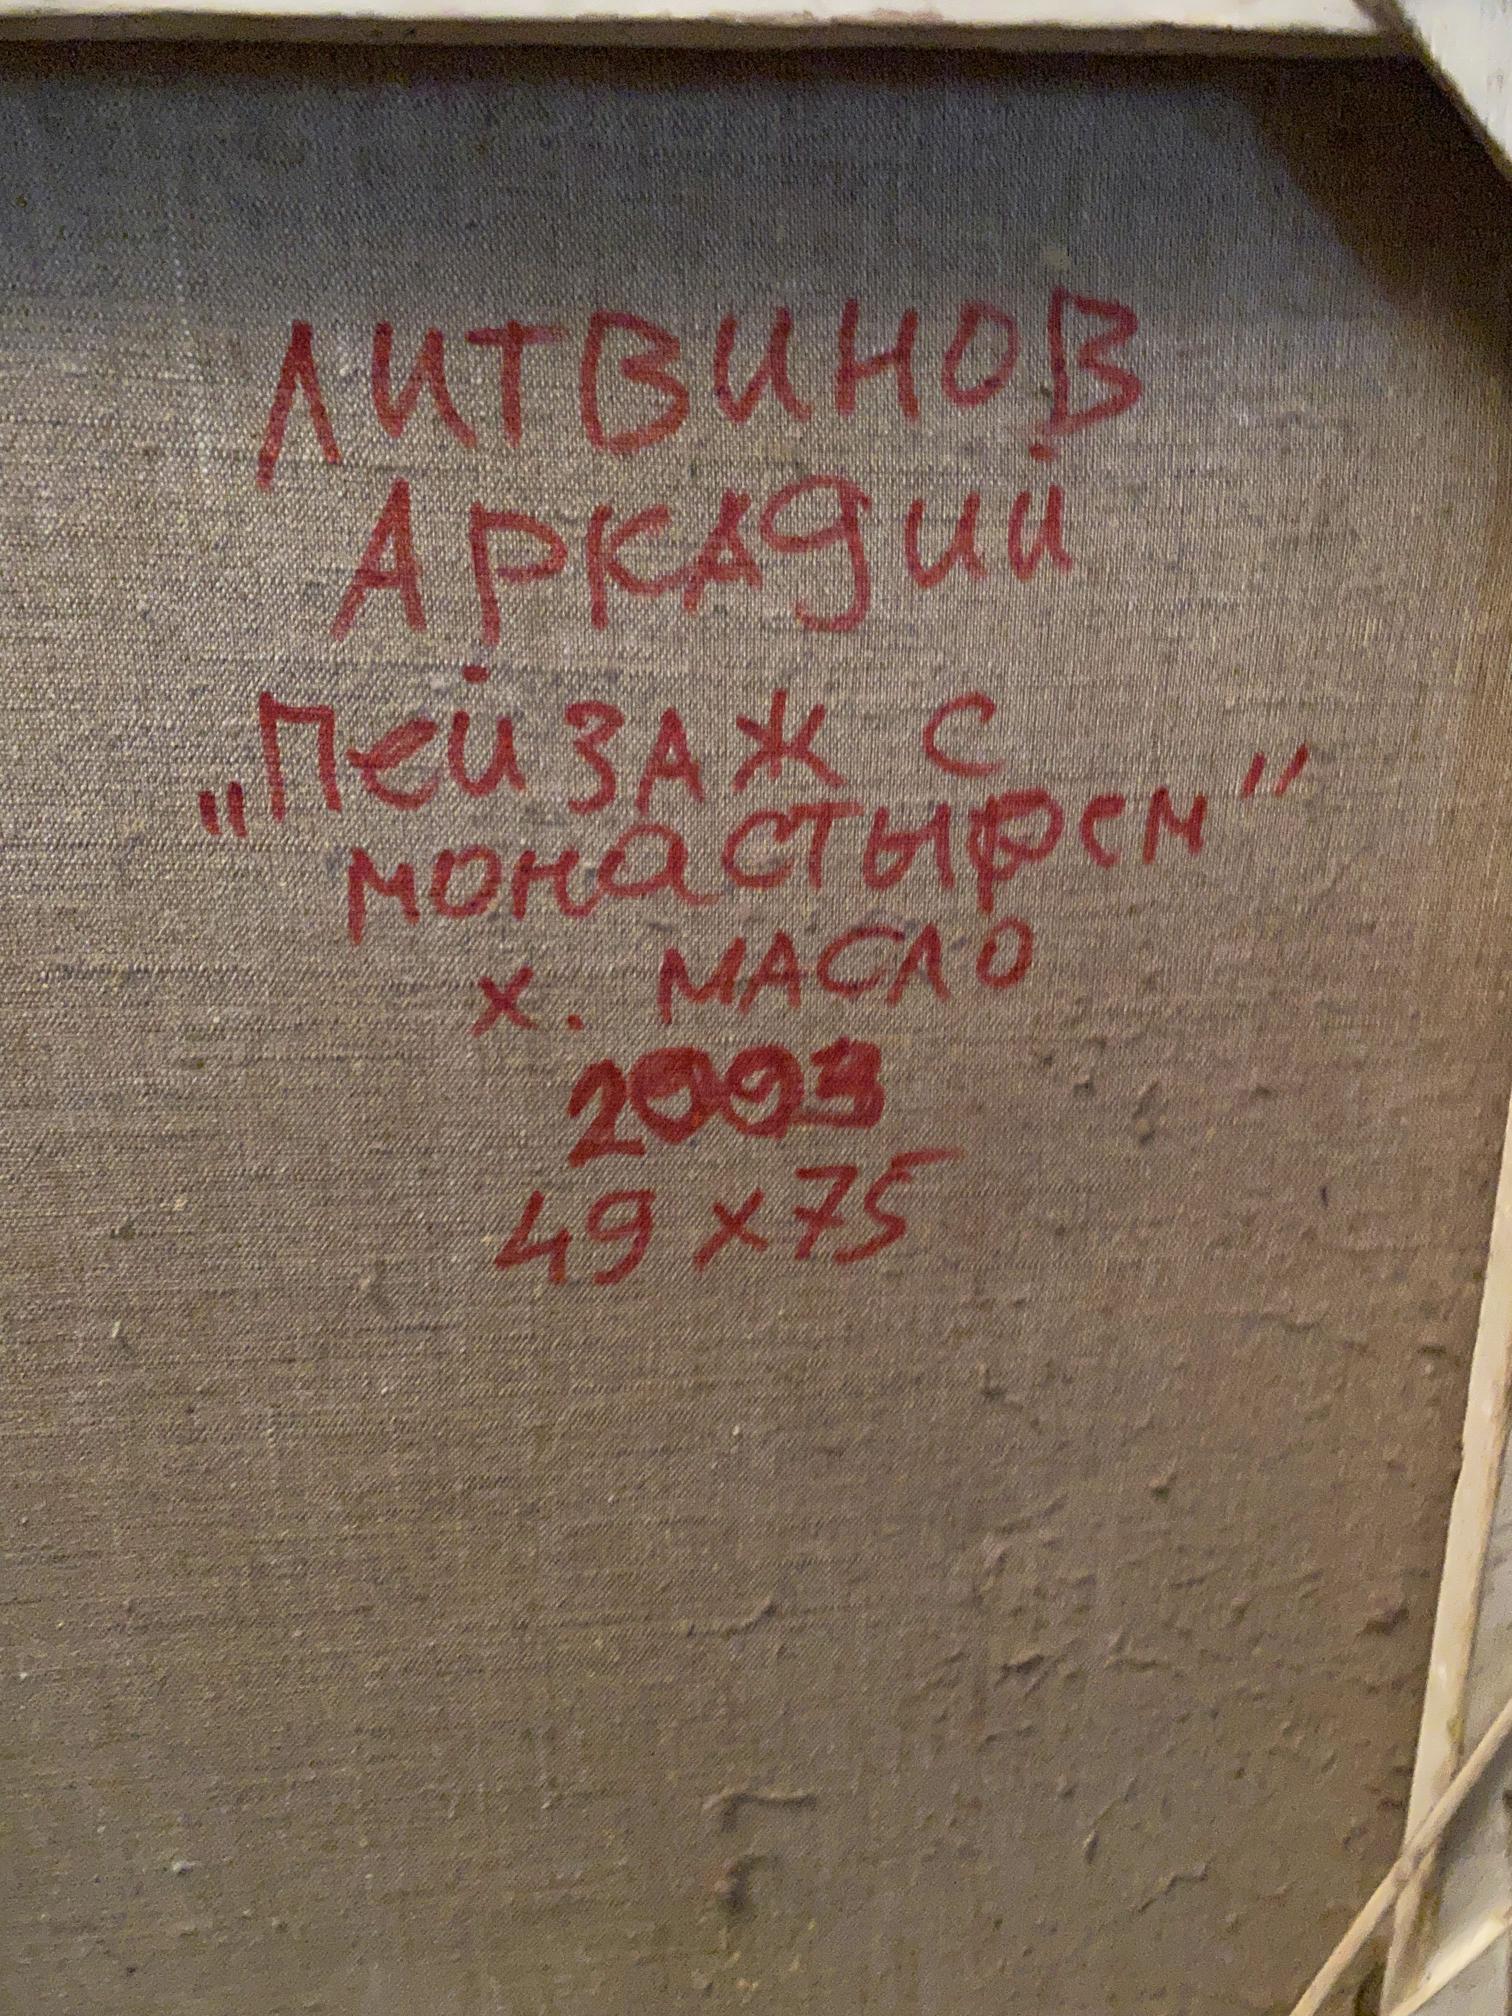 ЛИТВИНОВ
АРКАДИЙ
„Пейзаж с
монастырем"
х. МАСЛО
2003
49 х 75